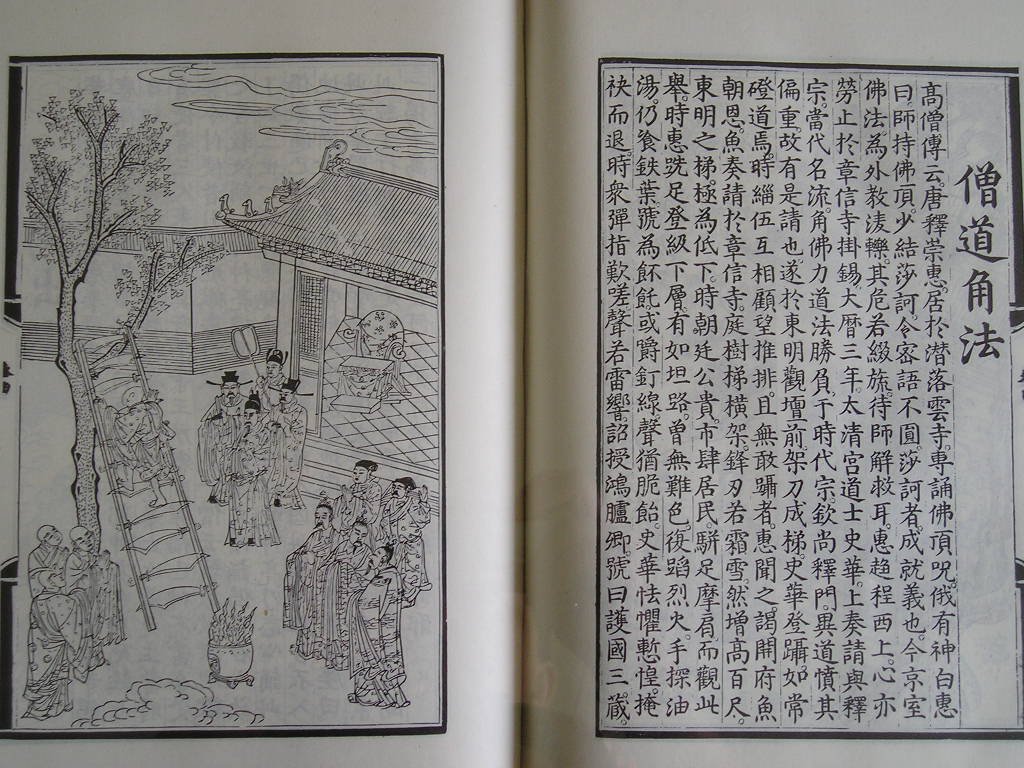 僧道角法
高僧傳云。唐釋崇惠。居於潛落雲寺。專誦佛頂呪。俄有神白惠
曰。師持佛頂。少結莎訶。令密語不圓。莎訶者。成就義也。今京室
佛法。為外教淩轢。其危若綴旒。待師解救耳。惠趨程西上。心亦
勞止。於章信寺掛錫。大曆三年。太清宮道士史華。上奏請與釋
宗當代名流。角佛力道法勝負。于時代宗欽尚釋門。異道憤其
偏重。故有是請也。遂於東明觀壇前。架刀成梯。史華登躡。如常
磴道焉。時緇伍互相顧望推排。且無敢躡者。惠聞之。謁開府魚
朝恩。魚奏請於章信寺。庭樹梯橫架。鋒刃若霜雪。然增高百尺。
東明之梯。極為低下。時朝廷公貴。市肆居民。駢足摩肩。而觀此
舉。時惠跣足登級下層。有如坦路。曾無難色。復蹈烈火。手探油
湯。仍餐鉄葉。號為飥。或嚼釘線。聲猶脆飴。史華怯懼慙惶。掩
袂而退。時衆彈指歎嗟。聲若雷響。詔授鴻臚卿。號曰護國三藏。